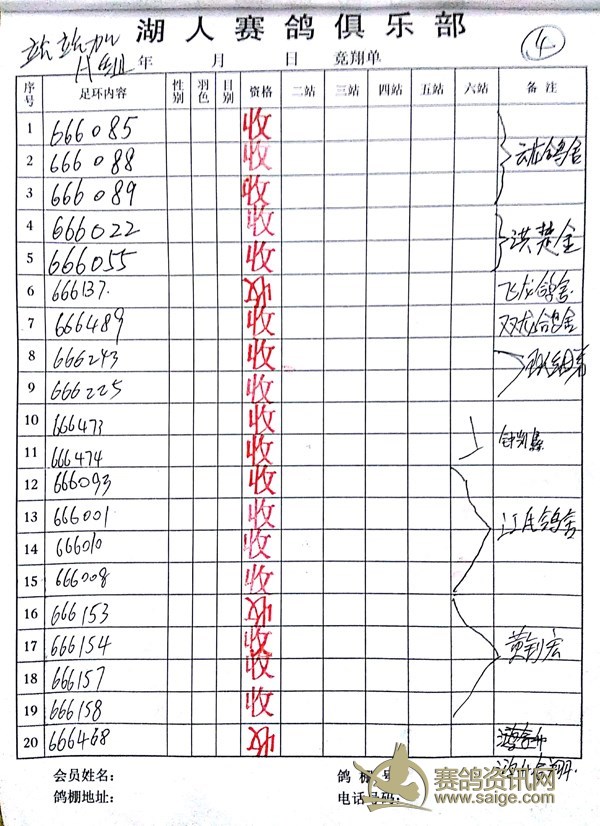 湖人赛鸽俱乐部
站站加
A组
年 月 日 竞翔单
4
序号 足环内容 性别 羽色 日别 资格 二站 三站 四站 五站 六站 备注
1 666085 收
2 666088 收 云龙鸽舍
3 666089 收
4 666022 收 洪楚金
5 666055 收
6 666137. 收 飞龙鸽舍
7 666489 收 双龙鸽舍
8 666243 收
9 666225 收
10 666473 收
11 666474 收
12 666093 收
13 666001 收 江氏鸽舍
14 666010 收
15 666008 收
16 666153 收
17 666154 收 黄剑宏
18 666157 收
19 666158 收
20 666468 收
会员姓名: 鸽棚号
鸽棚地址: 电话号码:
赛鸽资讯网
www.saige.com